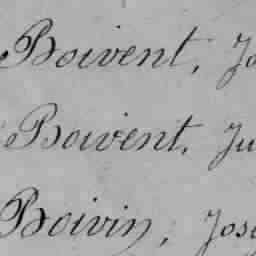 Boivent, Jo
Boivent, Ju
Boivin, Jose